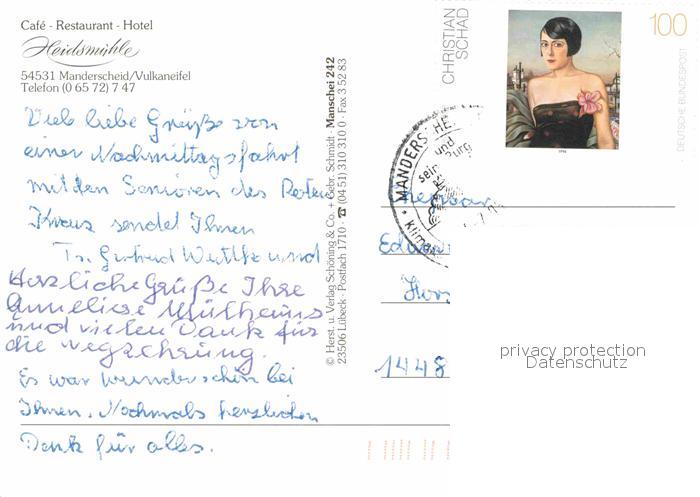 Café - Restaurant - Hotel
Heidsmühle
54531 Manderscheid/Vulkaneifel
Telefon (0 65 72) 7 47
Viele liebe Grüße von
einer Nachmittagsfahrt
mit den Senioren des Roten
Kreuz sendet Ihnen
Gertrud und
Herzliche Grüße Ihre
Anneliese Mülheims
und vielen Dank für
die
Es war wunderschön bei
Ihnen. Nochmals herzlichen
Dank für alles.
© Herst. u. Verlag Schöning & Co. + Gebr. Schmidt · Manschei 242
23506 Lübeck · Postfach 1710 · ☎ (04 51) 310 310 0 · Fax 3 52 83
CHRISTIAN
SCHAD
100
DEUTSCHE BUNDESPOST
1994
MANDERSCHE
und
sein
Burg
Klim
1448
privacy protection
Datenschutz